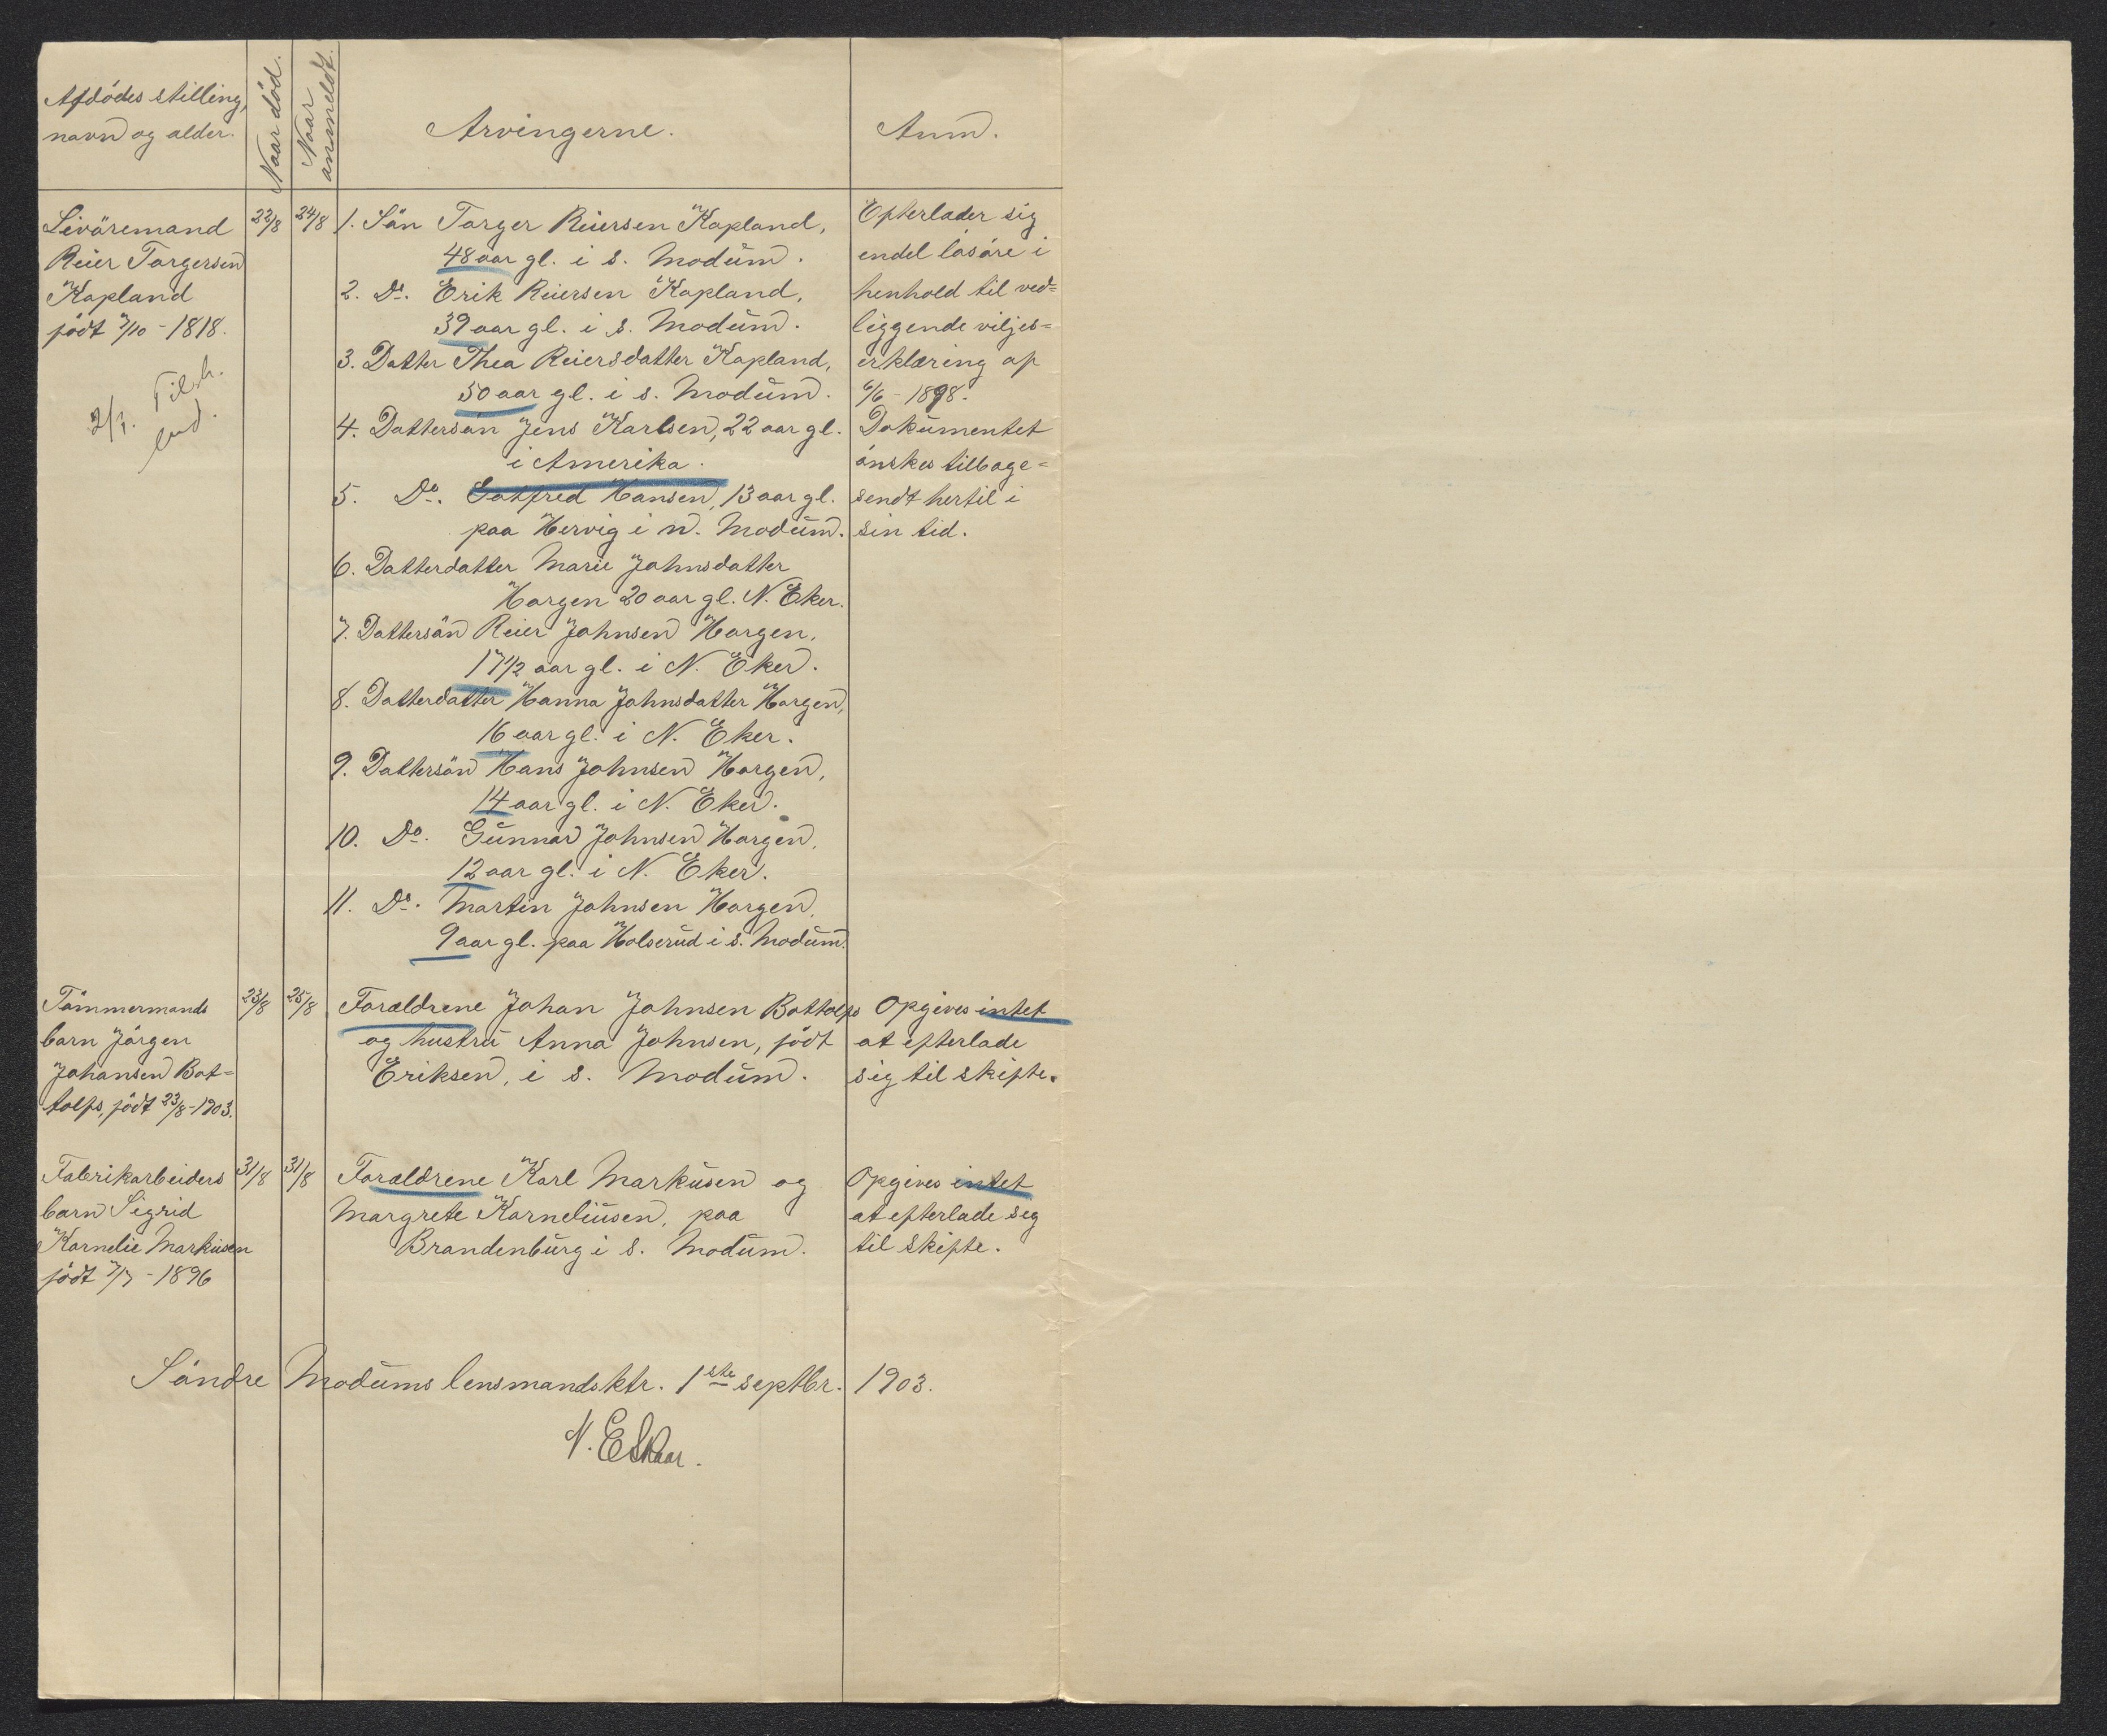 Afdödes stilling,
navn og alder.
Naar död.
Naar
anmeldt.
Arvingerne.
Anm.
Livöremand
Reier Torgersen
Kopland
födt 7/10 - 1818.
22/8
24/8
1. Sön Torger Reiersen Kopland,
48 aar gl. i s. Modum.
2. Do. Erik Reiersen Kopland,
39 aar gl. i s. Modum.
3. Datter Thea Reiersdatter Kopland,
50 aar gl. i s. Modum.
4. Dattersön Jens Karlsen, 22 aar gl.
i Amerika.
5. Do. Gotfred Hansen, 13 aar gl.
paa Hervig i n. Modum.
6. Datterdatter Marie Johnsdatter
Horgen 20 aar gl. N. Eker.
7. Dattersön Reier Johnsen Horgen,
17 1/2 aar gl. i N. Eker.
8. Datterdatter Hanna Johnsdatter Horgen,
16 aar gl. i N. Eker.
9. Dattersön Hans Johnsen Horgen,
14 aar gl. i N. Eker.
10. Do. Gunnar Johnsen Horgen,
12 aar gl. i N. Eker.
11. Do. Martin Johnsen Horgen,
9 aar gl. paa Holserud i s. Modum.
Efterlader sig
endel lösöre i
henhold til ved=
liggende viljes=
erklæring af
6/6 - 1898.
Dokumentet
önskes tilbage=
sendt hertil i
sin tid.
Tömmermands
barn Jörgen
Johansen Bot=
tolfs, födt 23/8 - 1903.
23/8
25/8
Forældrene Johan Johnsen Bottolfs
og hustru Anna Johnsen, födt
Eriksen, i s. Modum.
Opgives intet
at efterlade
sig til skifte.
Fabrikarbeiders
barn Sigrid
Kornelie Markusen
födt 7/7 - 1896
31/8
31/8
Forældrene Karl Markusen og
Margrete Korneliusen, paa
Brandenburg i s. Modum.
Opgives intet
at efterlade sig
til skifte.
Söndre Modums lensmandsktr. 1ste septbr. 1903.
N. E Skaar.